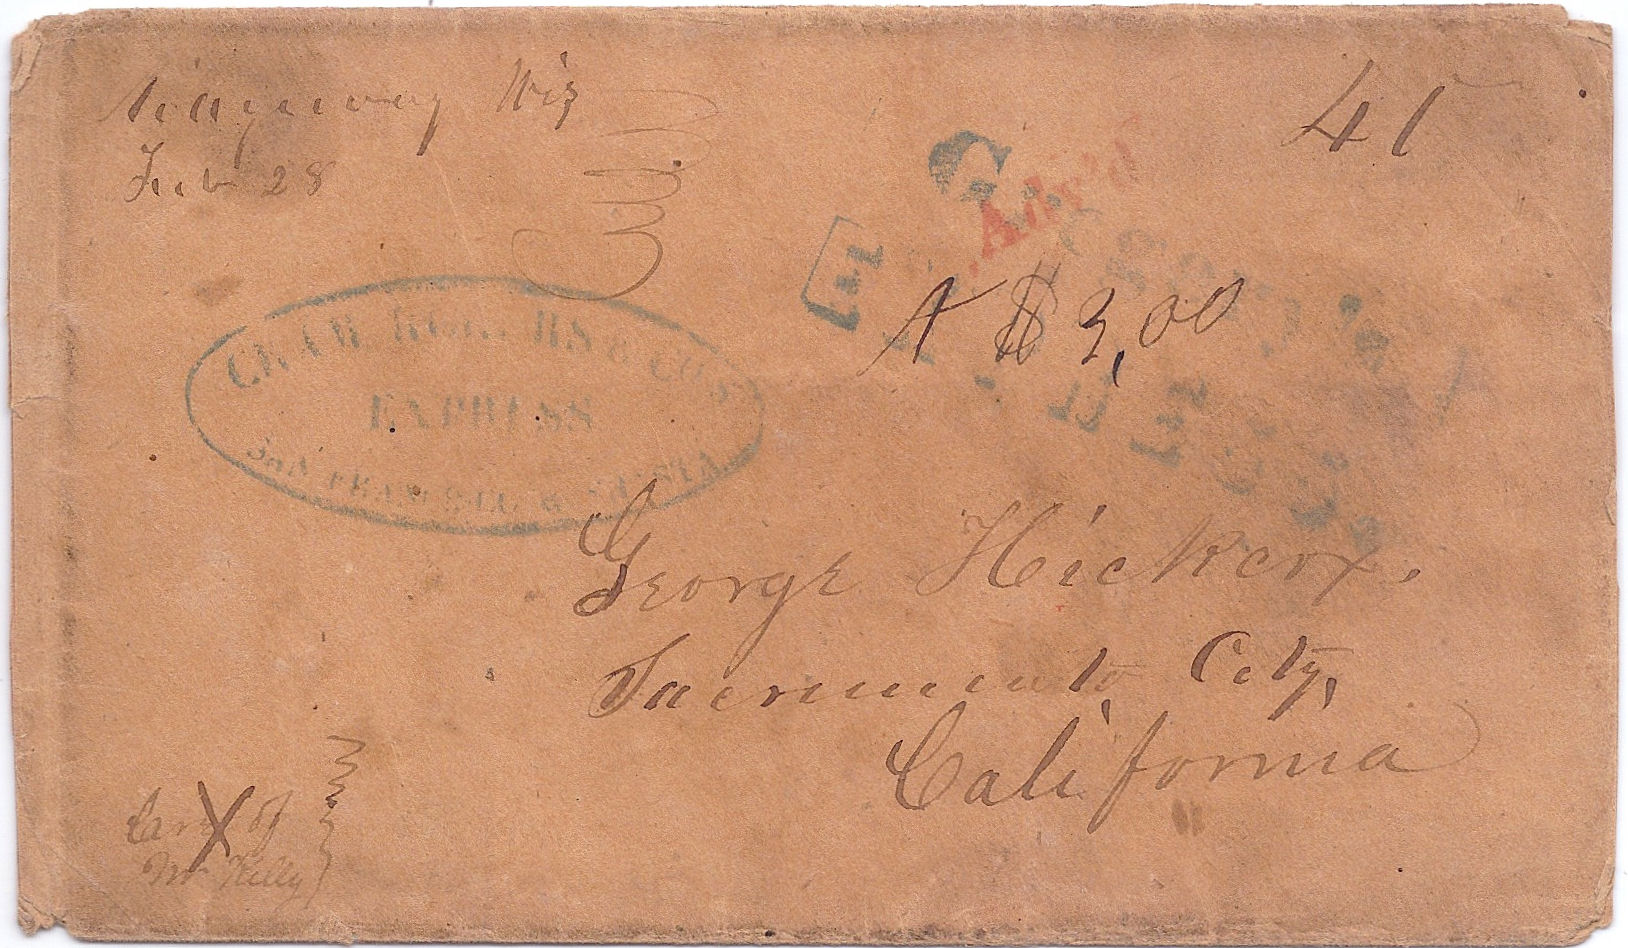 Wis
Feb 28
40
Adv'd
A $3,00
CRAM ROGERS & CO'S
EXPRESS
SAN FRANCISCO & SHASTA
George Hickcox,
Sacramento City,
California
Care of
Mr Kelly